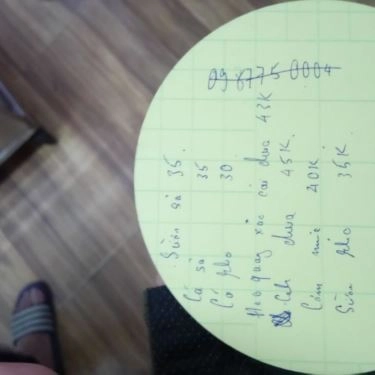 09 87750004
Sườn sả 35.
Cá sả 35
Cá kho 30
Heo quay xào cải chua 43K
Canh chua 45K.
Cơm 40K
Sườn kho 35K.